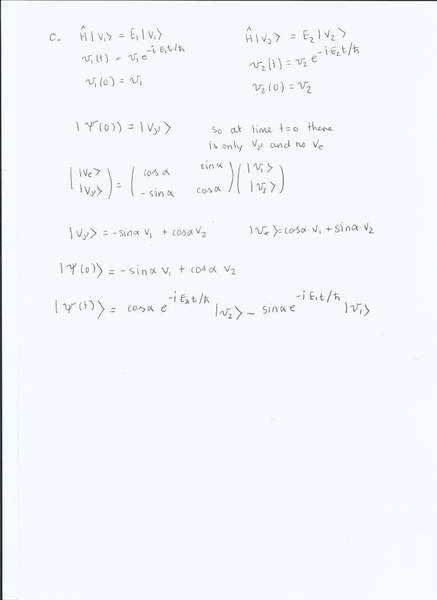 c. Ĥ|v₁> = E₁|v₁>    Ĥ|v₂> = E₂|v₂>
v₁(t) = v₁e^{-iE₁t/ħ}    v₂(t) = v₂e^{-iE₂t/ħ}
v₁(0) = v₁    v₂(0) = v₂
|Ψ(0)> = |vμ>    so at time t=0 there
is only vμ and no ve
(|ve>    = ( cosα    sinα  (|v₁>
|vμ>)    -sinα    cosα )    |v₂>)
|vμ> = -sinα v₁ + cosα v₂    |ve> = cosα·v₁ + sinα·v₂
|Ψ(0)> = -sinα v₁ + cosα v₂
|Ψ(t)> = cosα e^{-iE₂t/ħ}|v₂> - sinα e^{-iE₁t/ħ}|v₁>